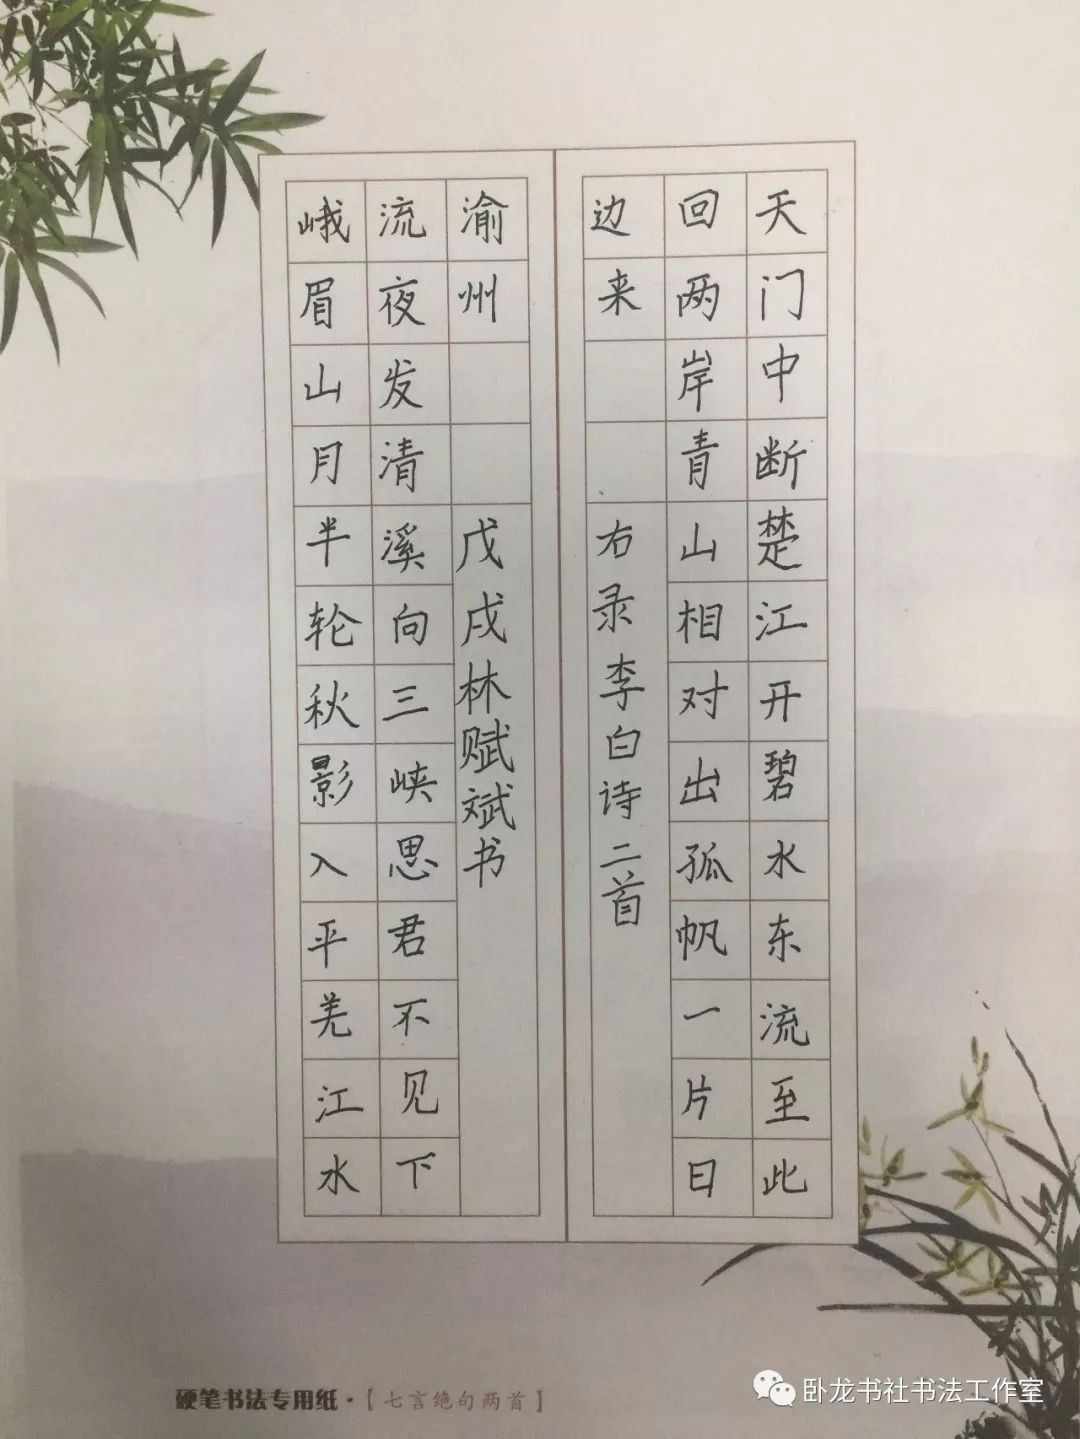 天门中断楚江开碧水东流至此
回两岸青山相对出孤帆一片日
边来
右录李白诗二首
峨眉山月半轮秋影入平羌江水
流夜发清溪向三峡思君不见下
渝州
戊戌林赋斌书
硬笔书法专用纸·【七言绝句两首】
卧龙书社书法工作室